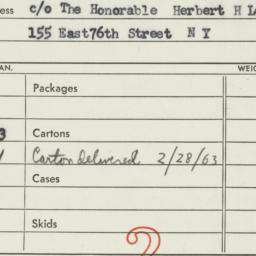 ess c/o The Honorable Herbert H L
155 East76th Street N Y
AN. WEIG
Packages
3 Cartons
Carton Delivered 2/28/63
Cases
Skids